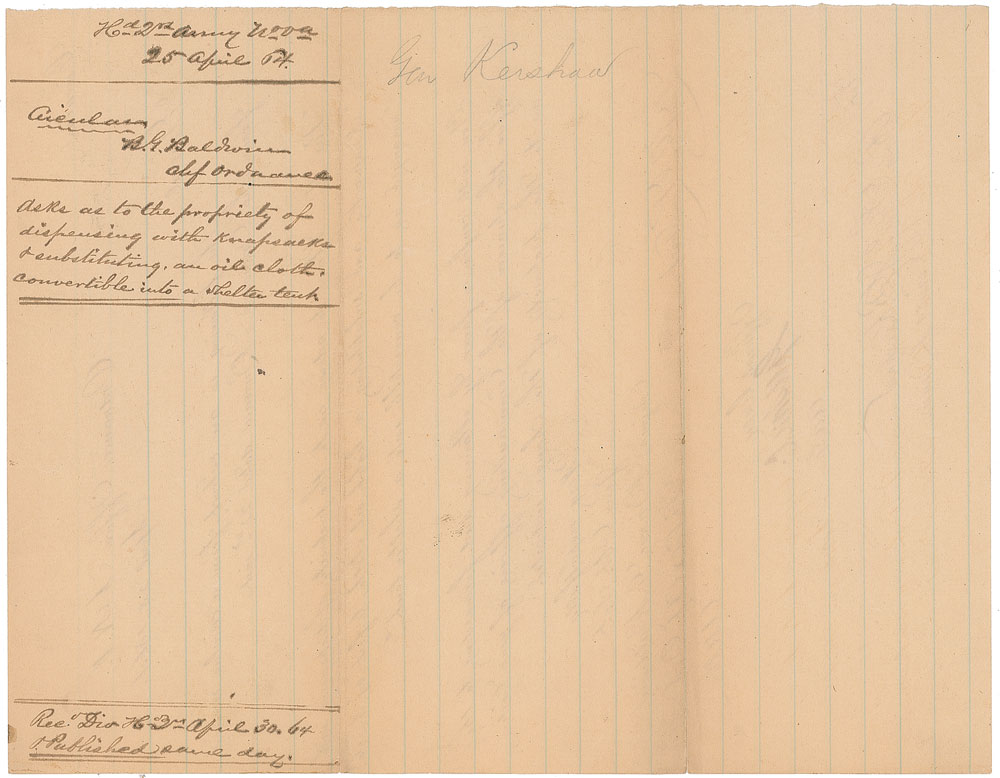 Hd 2rs Army No Va
25 April 64.
Circular
B.G. Baldwin
chf ordnance
Asks as to the propriety of
dispensing with Knapsacks
& substituting, an oil cloth,
convertible into a shelter tent
Recd Div Hd Qrs April 30. 64
& Published same day.
Gen Kershaw